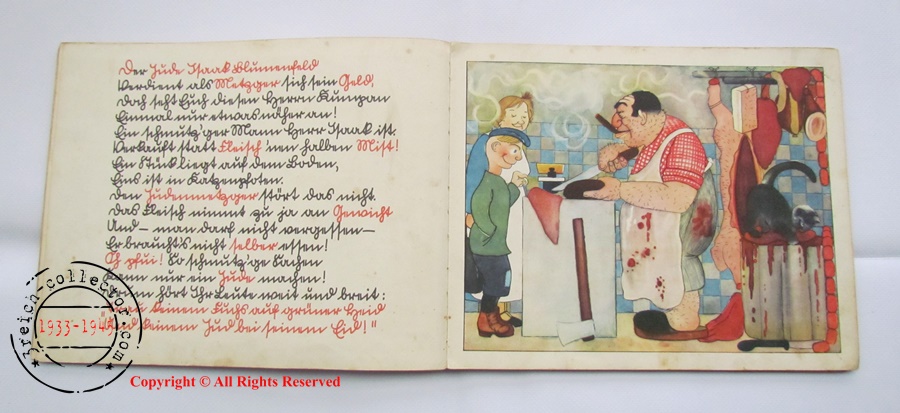 Der Jude Isaak Blumenfeld
Verdient als Metzger sich sein Geld,
Doch seht Euch diesen Herrn Kumpan
Einmal nur etwas näher an!
Ein schmutz'ger Mann Herr Isaak ist.
Verkauft statt Fleisch 'nen halben Mist!
Ein Stück liegt auf dem Boden,
Eins ist in Katzenpfoten.
Den Judenmetzger stört das nicht.
Das Fleisch nimmt zu ja an Gewicht
Und – man darf nicht vergessen –
Er braucht's nicht selber essen!
Ach pfui! So schmutz'ge Sachen
nur ein Jude machen!
hört Ihr Leute weit und breit:
keinem Fuchs auf grüner Heid
Und keinem Jud bei seinem Eid!"
3reich-collector.com
1933-1945
Copyright © All Rights Reserved